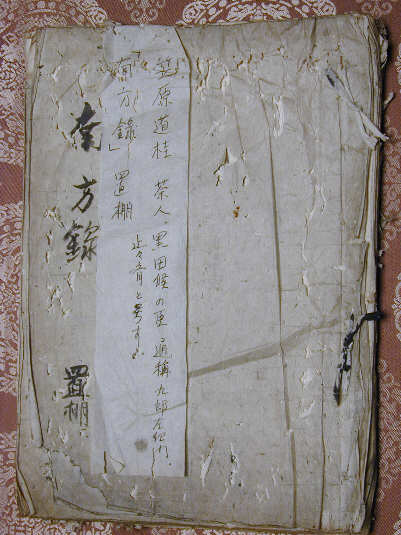 笠原道桂 茶人、黒田候の臣 通称九郎左衛門、
と号す。
「南方録」 置棚
南方録 置棚